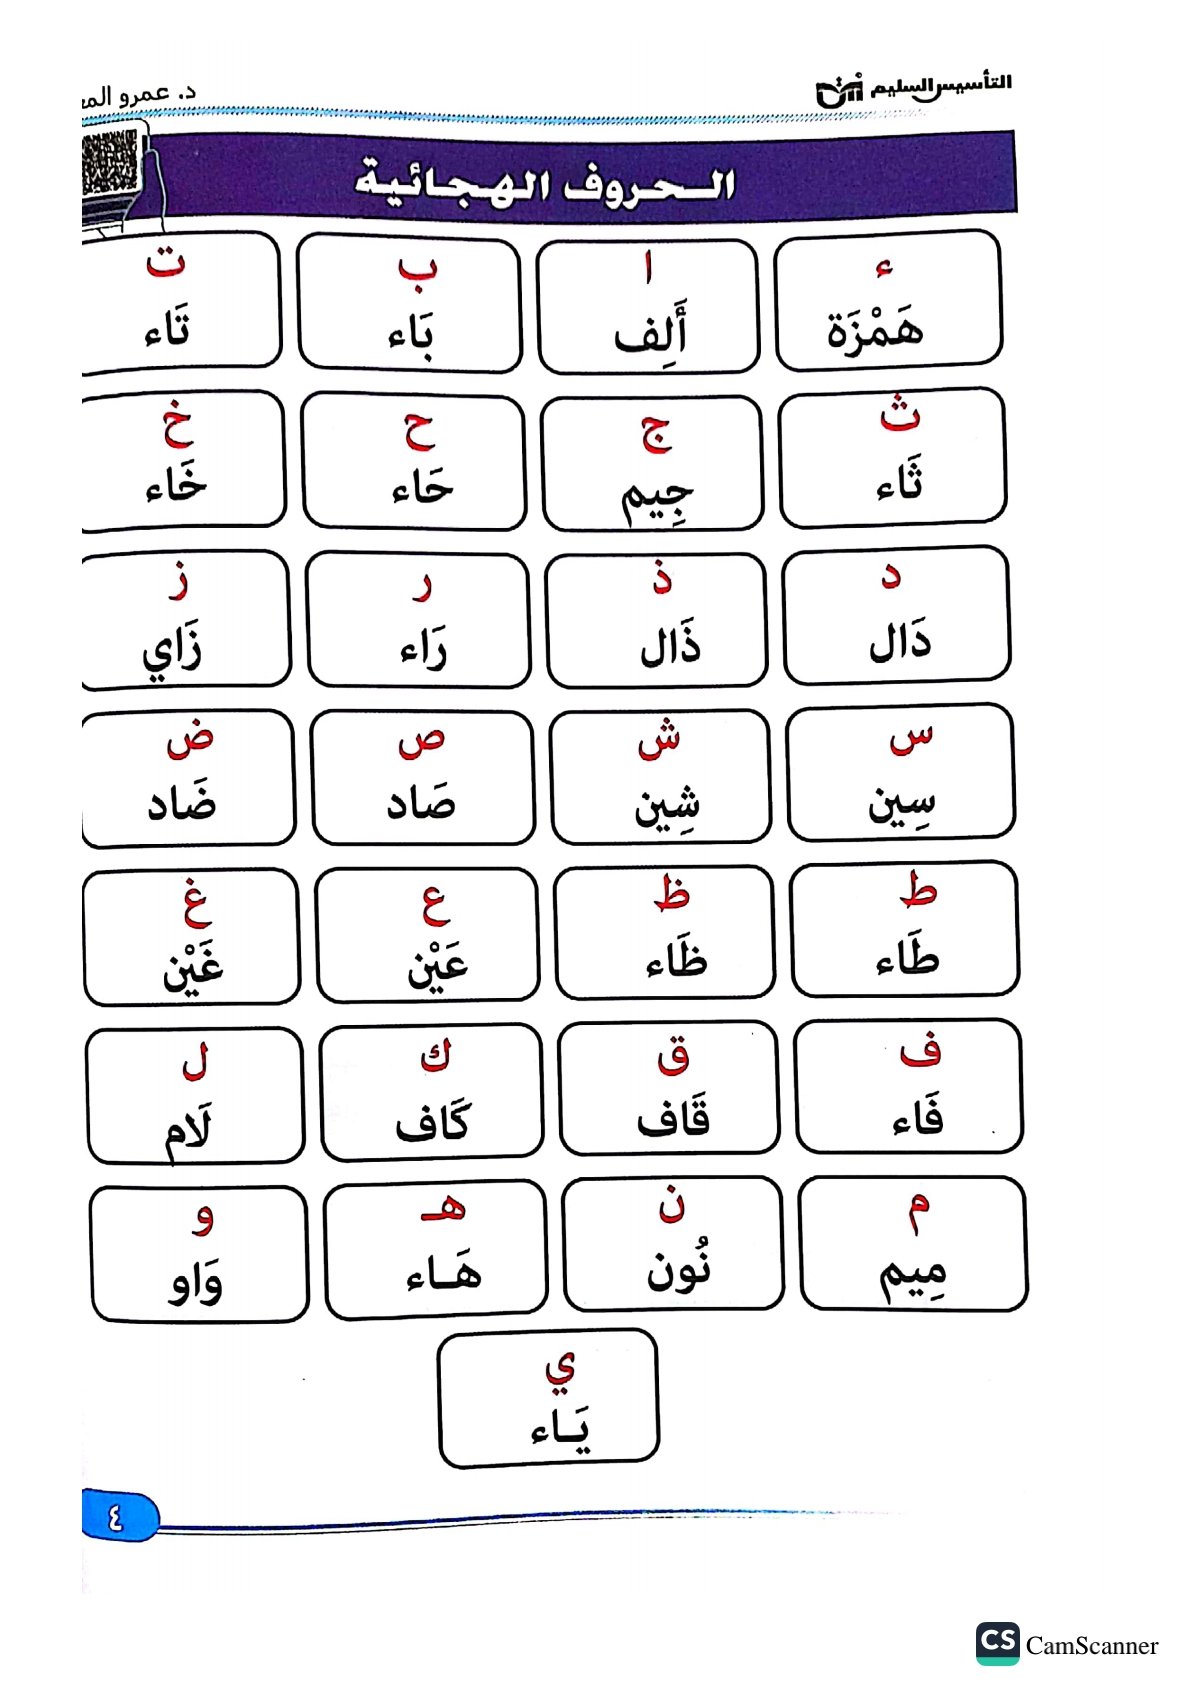 التأسيس السليم
د. عمرو
الحروف الهجائية
ء ا ب ت
هَمْزَة أَلِف بَاء تَاء
ث ج ح خ
ثَاء جِيم حَاء خَاء
د ذ ر ز
دَال ذَال رَاء زَاي
س ش ص ض
سِين شِين صَاد ضَاد
ط ظ ع غ
طَاء ظَاء عَيْن غَيْن
ف ق ك ل
فَاء قَاف كَاف لَام
م ن هـ و
مِيم نُون هَـاء وَاو
ي
يَـاء
٤
CS CamScanner